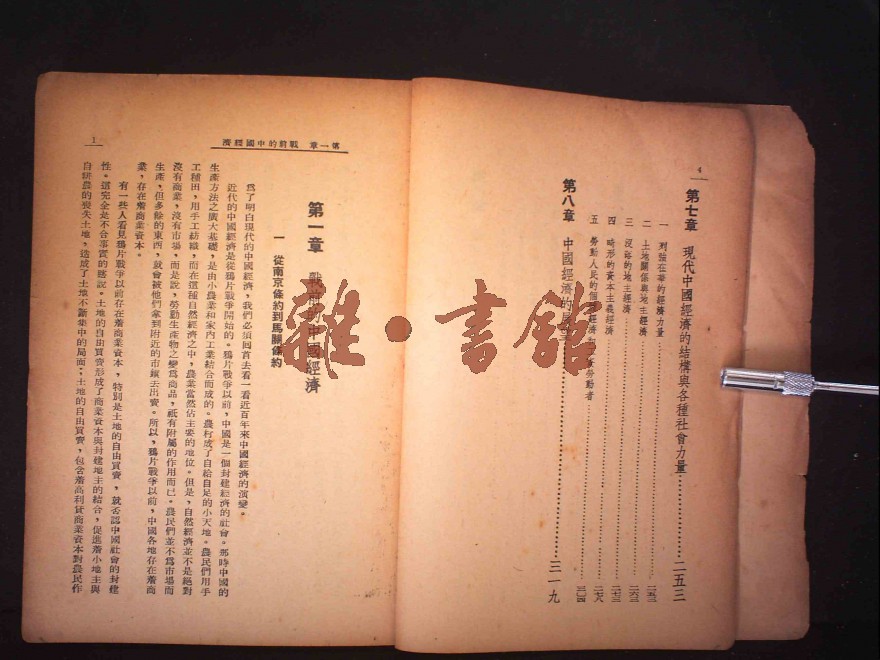 4
第七章　現代中國經濟的結構與各種社會力量…………二五三
一　列強在華的經濟力量…………二五三
二　土地關係與地主經濟…………二六三
三　沒落的地主經濟…………
四　畸形的資本主義經濟…………二七三
五　勞動人民的個體經濟和…勞動者…………
第八章　中國經濟的展望…………三一九
第一章　戰前的中國經濟
1
第一章　戰前的中國經濟
一　從南京條約到馬關條約
爲了明白現代的中國經濟，我們必須回首去看一看近百年來中國經濟的演變。
近代的中國經濟是從鴉片戰爭開始的。鴉片戰爭以前，中國是一個封建經濟的社會。那時中國的
生產方法之廣大基礎，是由小農業和家內工業結合而成的。農村成了自給自足的小天地。農民們用手
工種田，用手工紡織，而在這種自然經濟之中，農業當然佔主要的地位。但是，自然經濟並不是絕對
沒有商業，沒有市場，而是說，勞動生產物之變爲商品，祇有附屬的作用而已。農民們並不爲市場而
生產，但多餘的東西，就會被他們拿到附近的市鎮去出賣。所以，鴉片戰爭以前，中國各地存在着商
業，存在着商業資本。
有一些人看見鴉片戰爭以前存在着商業資本，特別是土地的自由買賣，就否認中國社會的封建
性。這完全是不合事實的瞎說。土地的自由買賣形成了商業資本與封建地主的結合，促進着小地主與
自耕農的喪失土地，造成了土地不斷集中的局面；土地的自由買賣，包含着高利貸商業資本對農民作
雜·書館